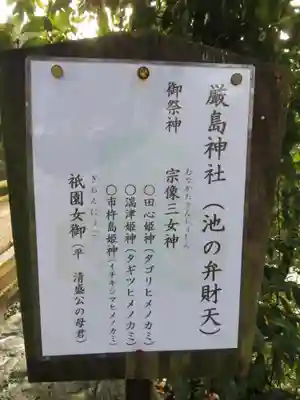 厳島神社（池の弁財天）
御祭神
むなかたさんじょしん
宗像三女神
〇田心姫神（タゴリヒメノカミ）
〇湍津姫神（タギツヒメノカミ）
〇市杵島姫神（イチキシマヒメノカミ）
ぎおんにょうご
祇園女御（平 清盛公の母君）